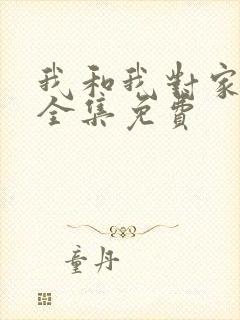 我和我對家
全集免費
童丹